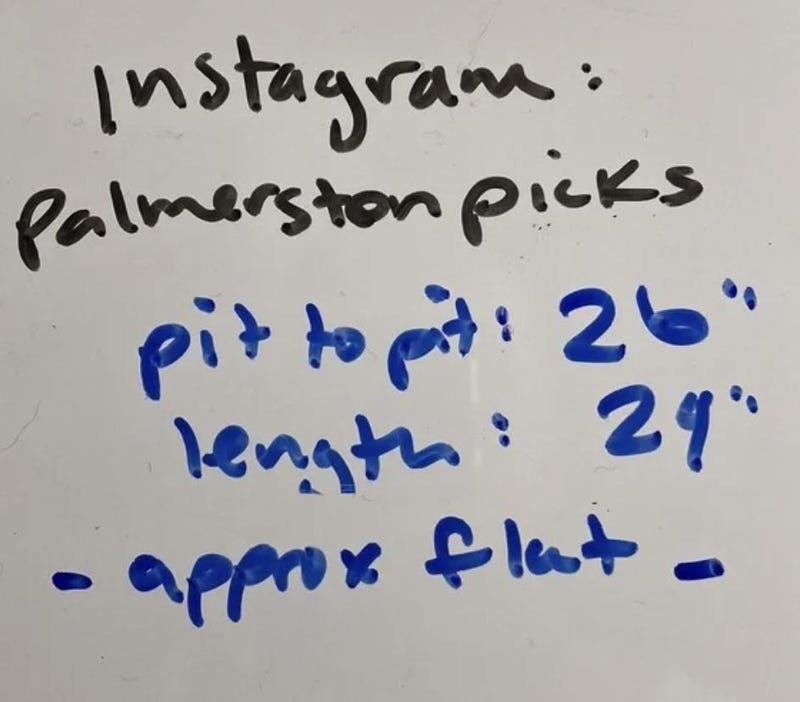 Instagram:
Palmerston picks
pit to pit: 26"
length: 29"
- approx flat -